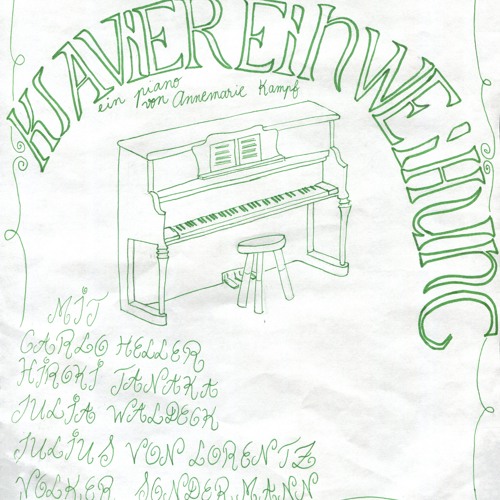 KLAVIEREINWEIHUNG
ein piano
von Annemarie Kampf
MIT
CARLO HELLER
HIROKI TANAKA
JULIA WALDECK
JULIUS VON LORENTZ
VOLKER SONDERMANN